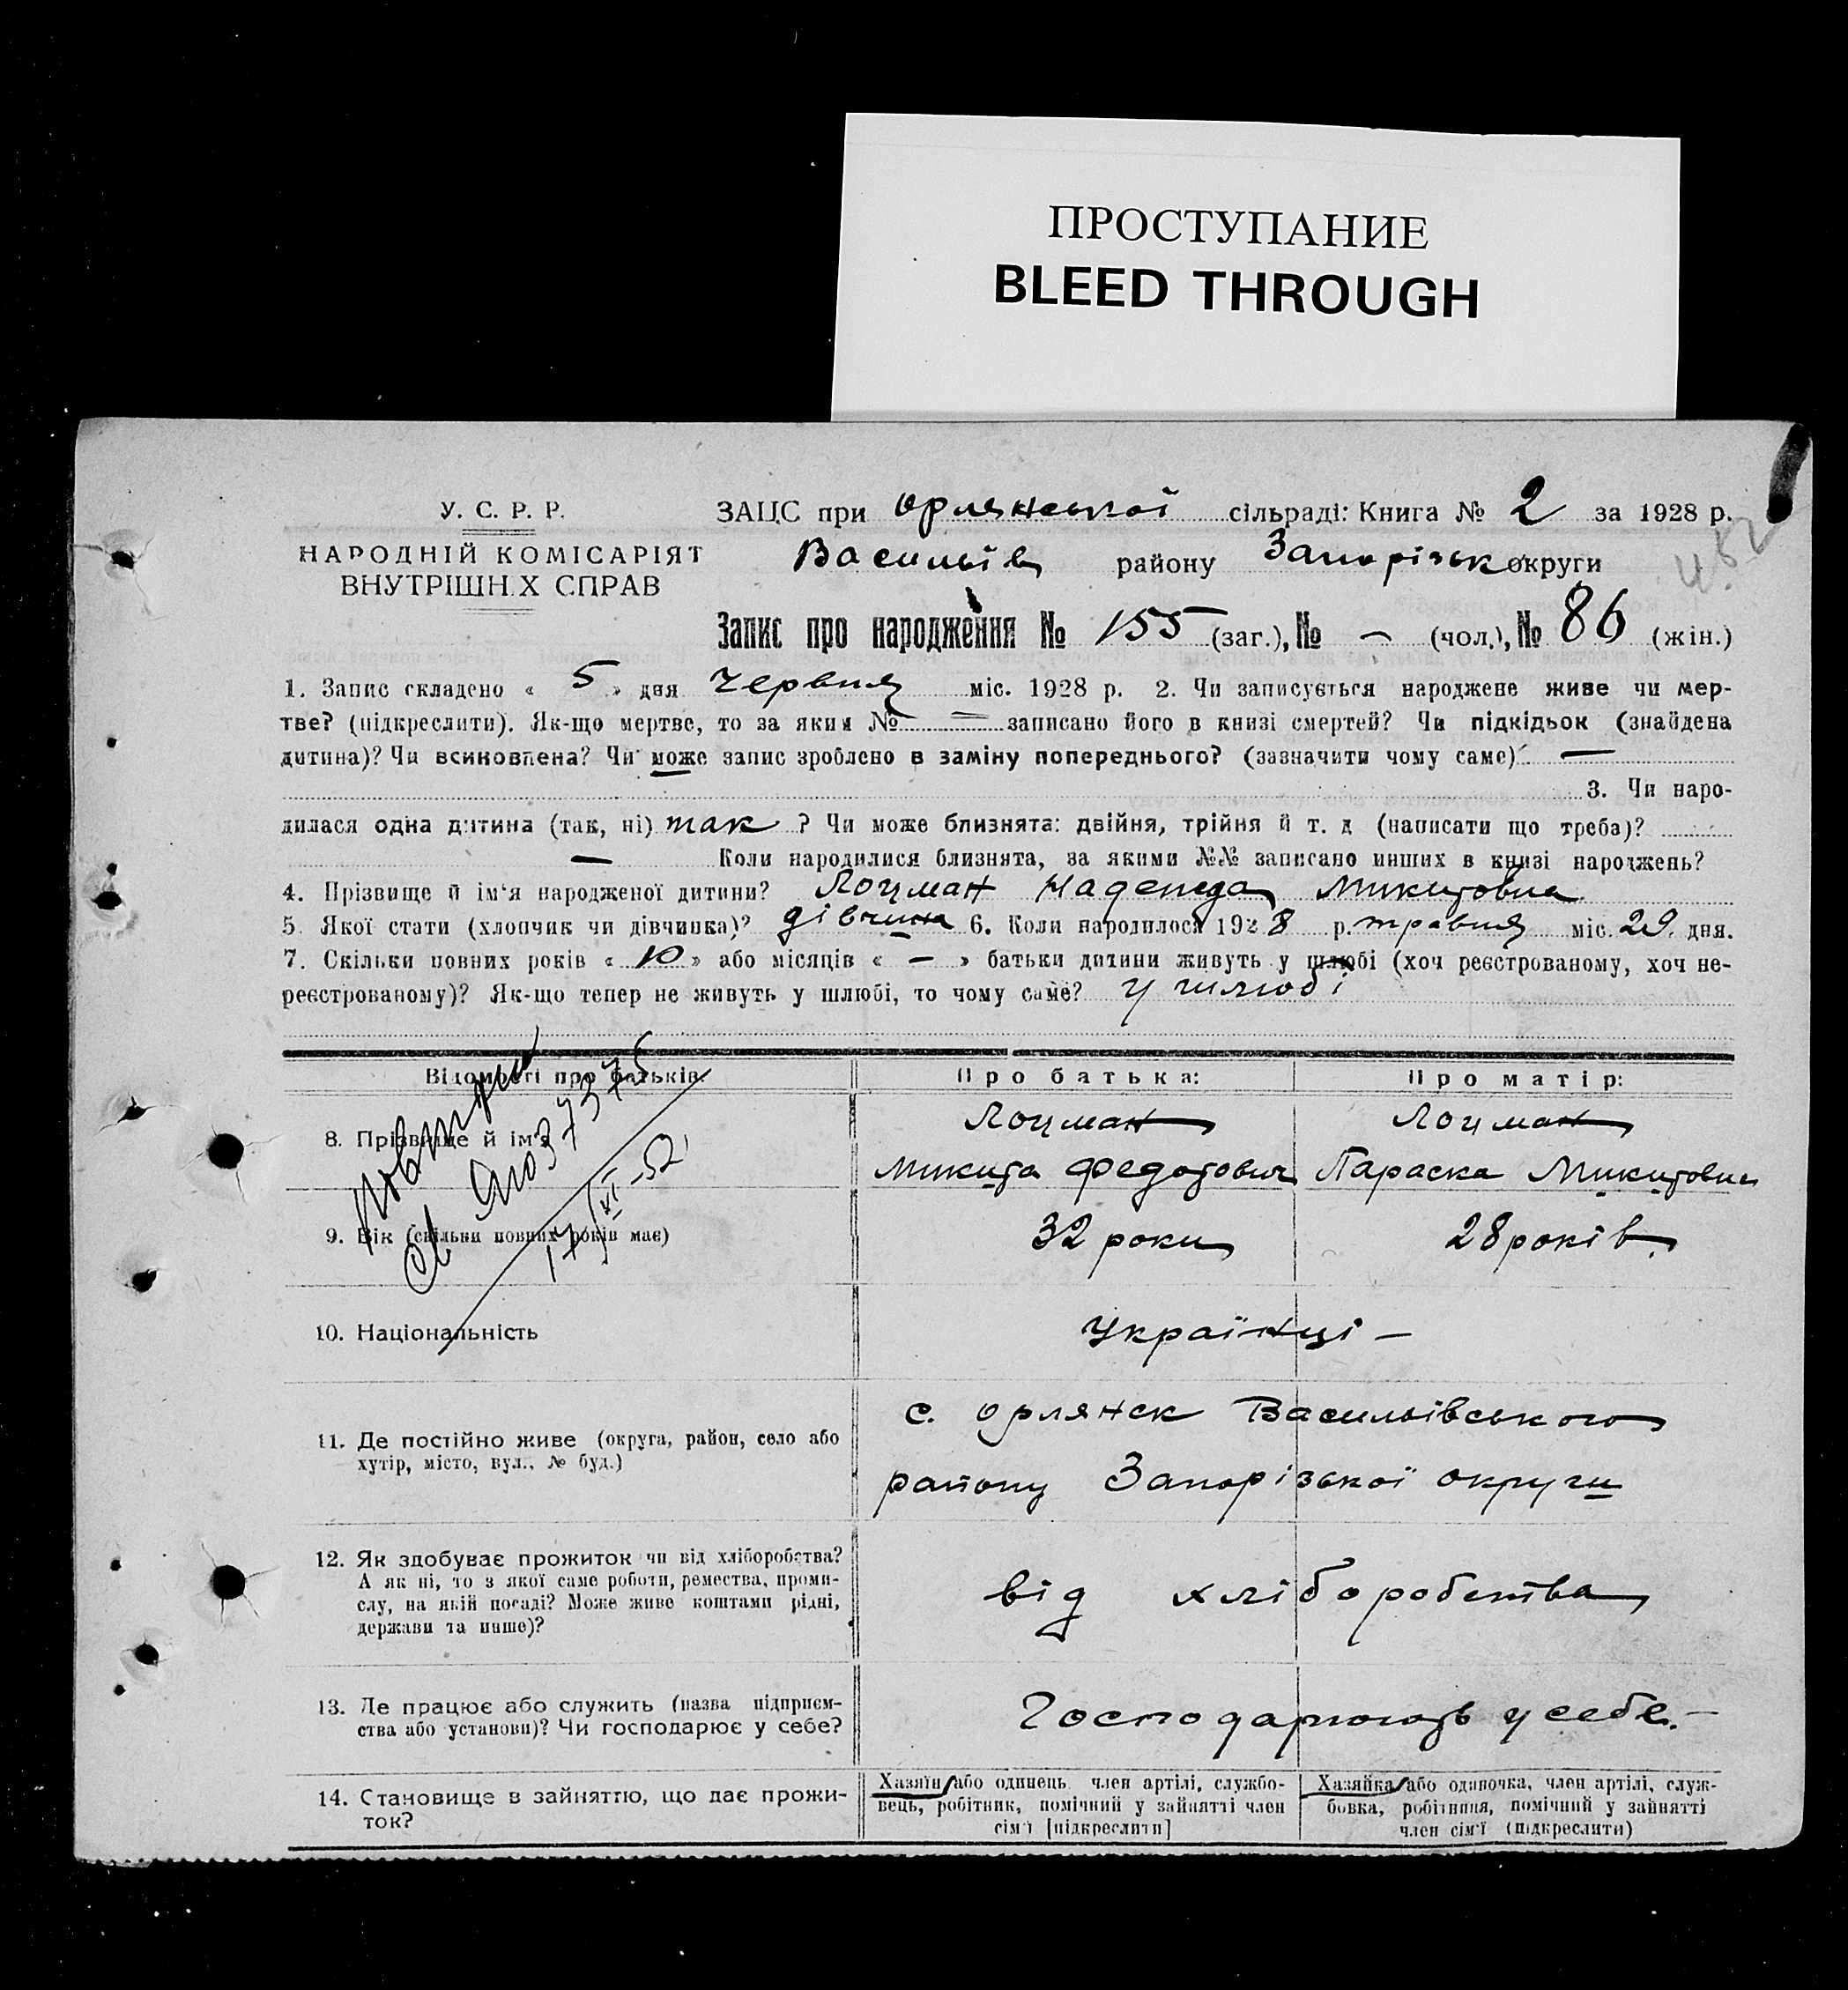 ПРОСТУПАНИЕ
BLEED THROUGH
У. С. Р. Р.
НАРОДНІЙ КОМІСАРІЯТ
ВНУТРІШН.Х СПРАВ
ЗАЦС при Орлянській сільраді: Книга № 2 за 1928 р.
Васильів району Запорізьк округи
Запис про народження № 155 (заг.), № — (чол.), № 86 (жін.)
1. Запис складено « 5 » дня червня міс. 1928 р. 2. Чи записується народжене живе чи мер-
тве? (підкреслити). Як-що мертве, то за яким № = записано його в книзі смертей? Чи підкідьок (знайдена
дитина)? Чи всиновлена? Чи може запис зроблено в заміну попереднього? (зазначити чому саме) —
3. Чи наро-
дилася одна дитина (так, ні) так ? Чи може близнята: двійня, трійня й т. д (написати що треба)?
— Коли народилися близнята, за якими №№ записано инших в книзі народжень?
4. Прізвище й ім'я народженої дитини? Лоцман Надежда Микитовна
5. Якої стати (хлопчик чи дівчинка)? дівчина 6. Коли народилося 1928 р. травня міс. 29. дня.
7. Скільки повних років « 10 » або місяців « — » батьки дитини живуть у шлюбі (хоч реєстрованому, хоч не-
реєстрованому)? Як-що тепер не живуть у шлюбі, то чому саме? у шлюбі
Відомості про батьків:
Про батька:
Про матір:
8. Прізвище й ім'я
Лоцман
Микита Федотович
Лоцман
Параска Микитовна
9. Вік (скільки повних років має)
32 роки
28 років.
10. Національність
Українці —
11. Де постійно живе (округа, район, село або
хутір, місто, вул., № буд.)
с. Орлянск Васильівського
району Запорізької округи
12. Як здобуває прожиток чи від хліборобства?
А як ні, то з якої саме роботи, ремества, проми-
слу, на якій посаді? Може живе коштами рідні,
держави та инше)?
від хліборобства
13. Де працює або служить (назва підприєм-
ства або установи)? Чи господарює у себе?
Господарюють у себе. —
14. Становище в зайняттю, що дає прожи-
ток?
Хазяїн або одинець член артілі, службо-
вець, робітник, помічний у зайнятті член
сім'ї [підкреслити]
Хазяйка або одиночка, член артілі, служ-
бовка, робітниця, помічний у зайнятті
член сім'ї (підкреслити)